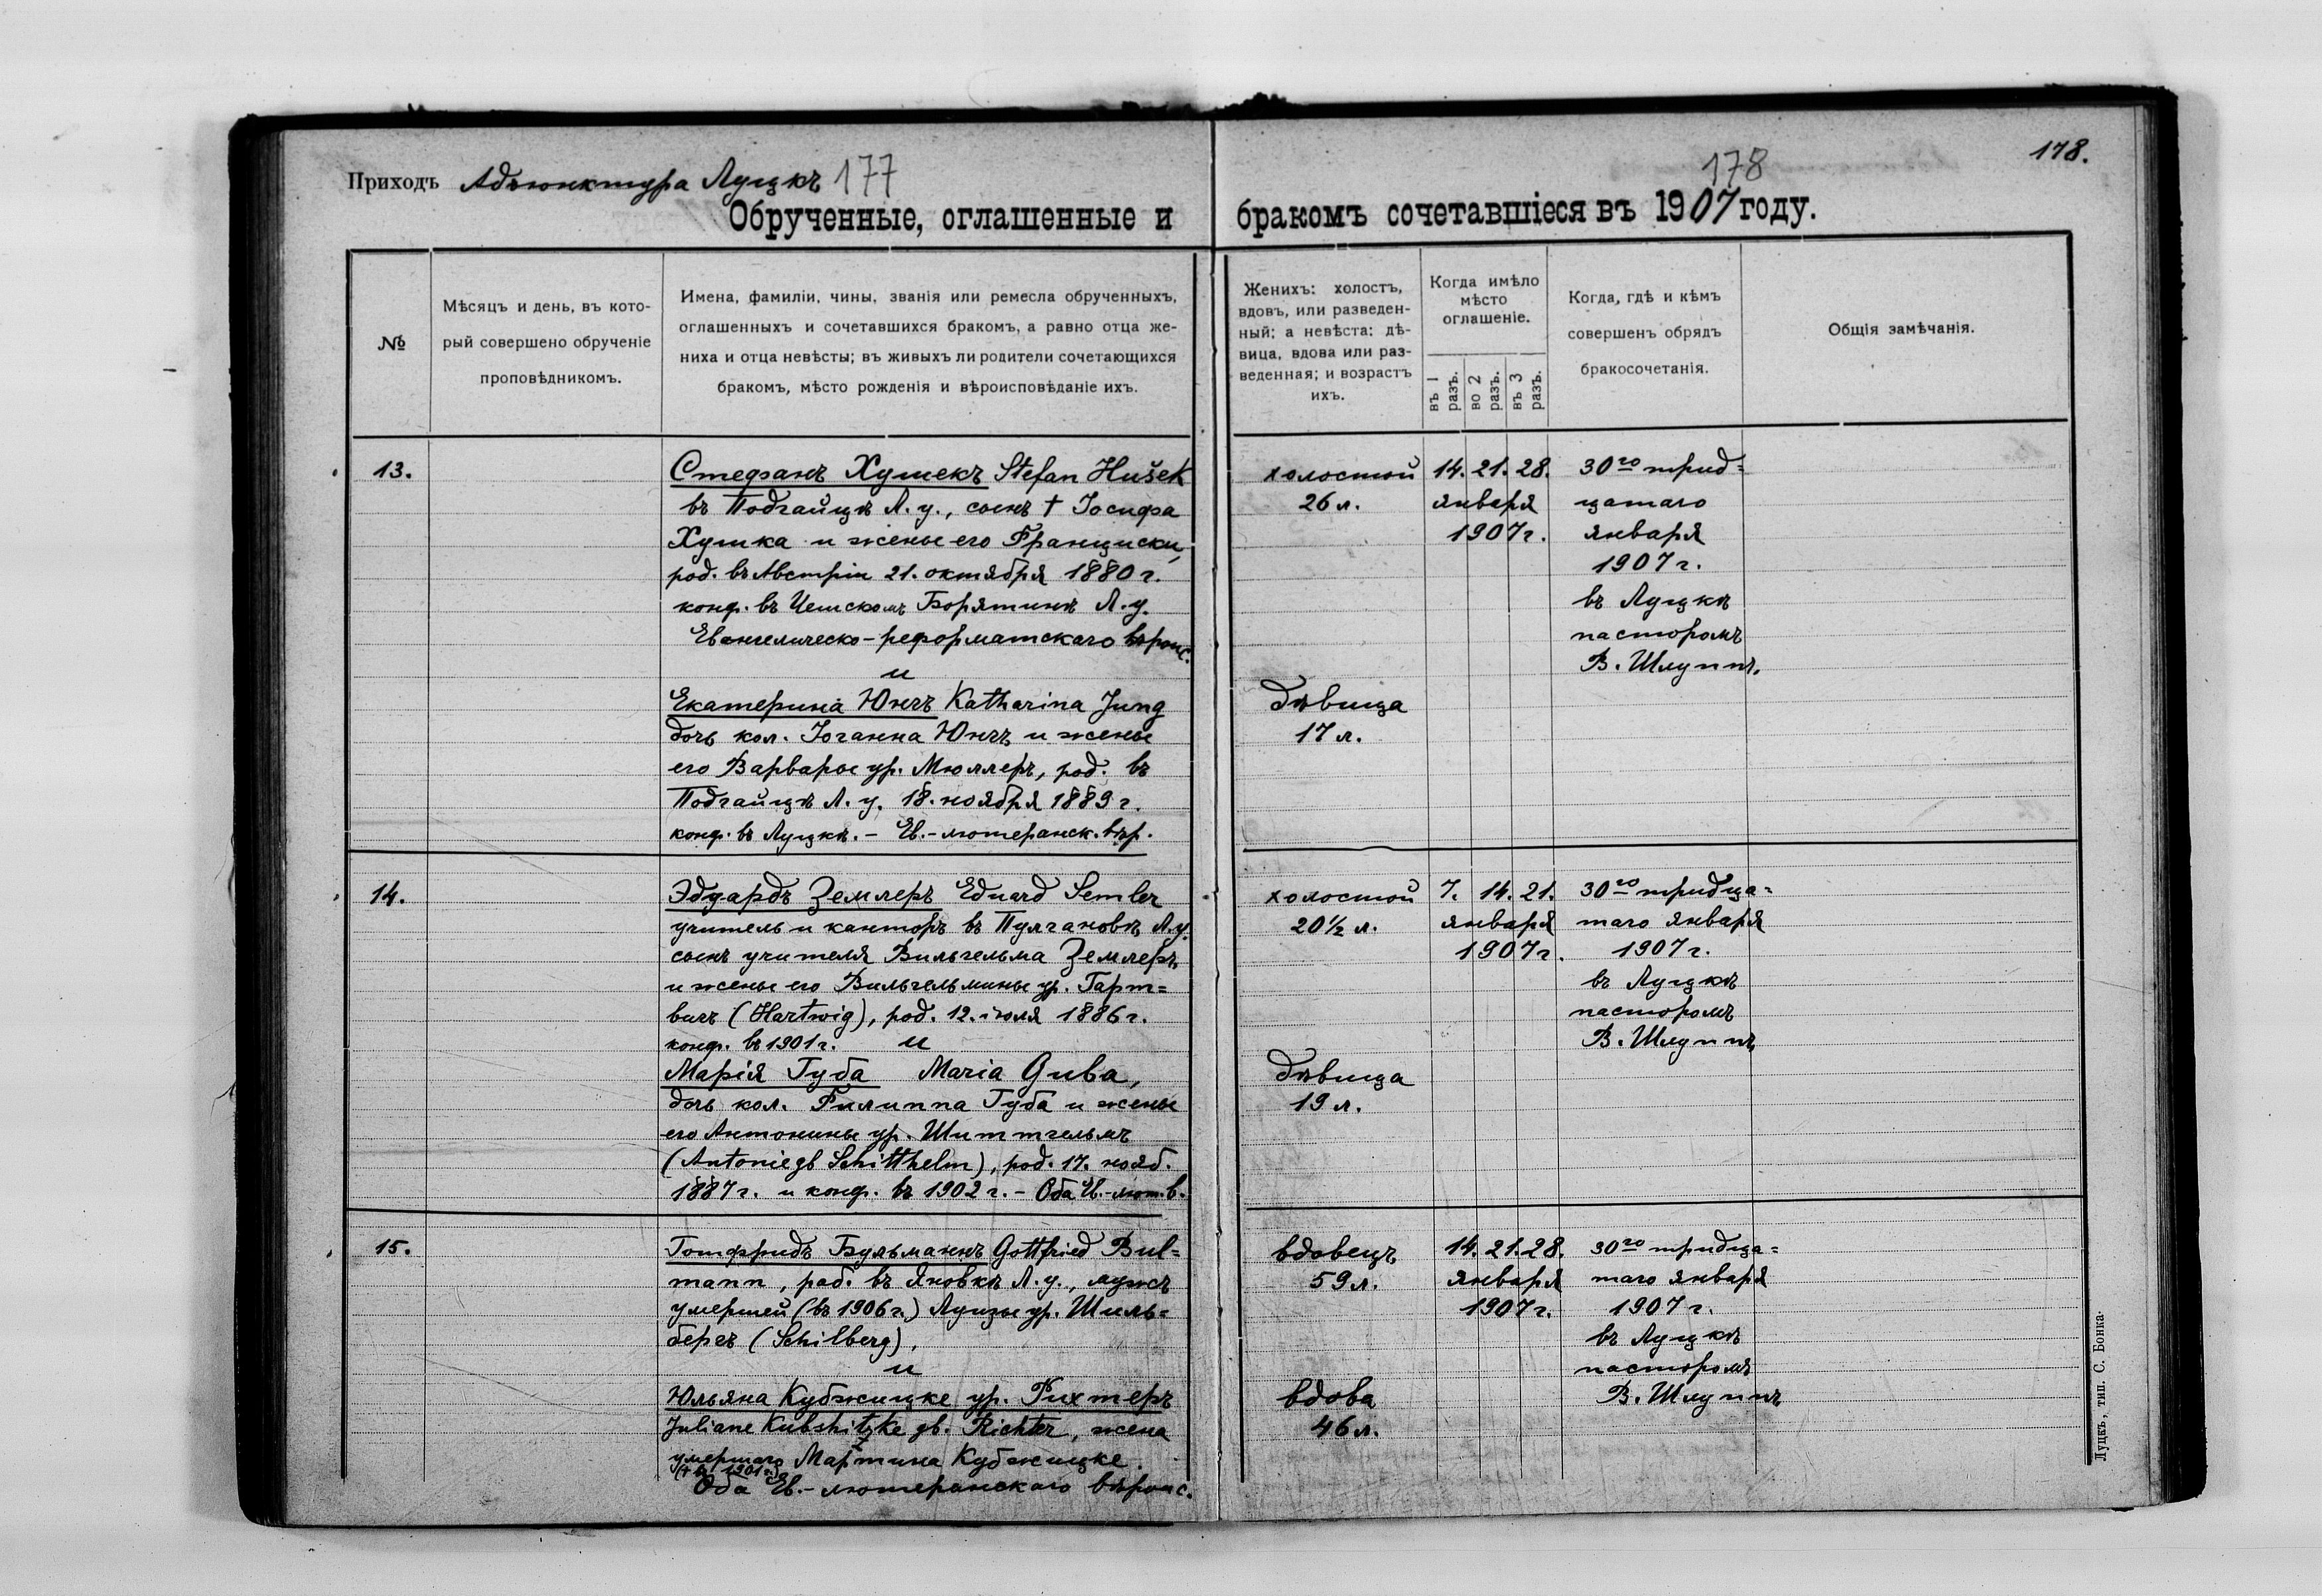 Приходъ Адъюнктура Луцкъ 177
178
178.
Обрученные, оглашенные и бракомъ сочетавшіеся въ 1907 году.
№
Мѣсяцъ и день, въ кото-
рый совершено обрученіе
проповѣдникомъ.
Имена, фамиліи, чины, званія или ремесла обрученныхъ,
оглашенныхъ и сочетавшихся бракомъ, а равно отца же-
ниха и отца невѣсты; въ живыхъ ли родители сочетающихся
бракомъ, мѣсто рожденія и вѣроисповѣданіе ихъ.
Женихъ: холостъ,
вдовъ, или разведен-
ный; а невѣста: дѣ-
вица, вдова или раз-
веденная; и возрастъ
ихъ.
Когда имѣло
мѣсто
оглашеніе.
въ 1 разъ.
во 2 разъ.
въ 3 разъ.
Когда, гдѣ и кѣмъ
совершенъ обрядъ
бракосочетанія.
Общія замѣчанія.
13.
Стефанъ Хушекъ Stefan Hušek
въ Подгайцѣ Л. у., сынъ † Іосифа
Хушка и жены его Франциски,
род. въ Австріи 21. октября 1880 г.
конф. въ Чешскомъ Борятинѣ Л. у.
Евангелическо-реформатскаго вѣроис.
и
Екатерина Юнгъ Katharina Jung
дочь кол. Іоганна Юнгъ и жены
его Варвары ур. Мюллеръ, род. въ
Подгайцѣ Л. у. 18. ноября 1889 г.
конф. въ Луцкѣ. - Ев.-лютеранск. вѣр.
холостой
26 л.
дѣвица
17 л.
14. 21. 28.
января
1907 г.
30го трид=
цатаго
января
1907 г.
въ Луцкѣ
пасторомъ
В. Шлуппъ.
14.
Эдуардъ Землеръ Eduard Semler
учитель и канторъ въ Пулгановѣ Л. у.
сынъ учителя Вильгельма Землеръ
и жены его Вильгельмины ур. Гарт=
вигъ (Hartwig), род. 12. іюля 1886 г.
конф. въ 1901 г. и
Марія Губа Maria Guba,
дочь кол. Филиппа Губа и жены
его Антонины ур. Шиттгельмъ
(Antonie gb Schitthelm), род. 17. нояб.
1887 г. и конф. въ 1902 г. - Оба Ев.-лют. в.
холостой
20½ л.
дѣвица
19 л.
7. 14. 21.
января
1907 г.
30го тридца=
таго января
1907 г.
въ Луцкѣ
пасторомъ
В. Шлуппъ
15.
Готфридъ Бульманнъ Gottfried Bul=
mann, раб. въ Яновкѣ Л. у., мужъ
умершей (въ 1906 г.) Луизы ур. Шиль=
бергъ (Schilberg),
и
Юльяна Кубжицке ур. Рихтеръ
Juliane Kubshitzke gb. Richter, жена
умершаго Мартина Кубжицке.
(† въ 1901 г.)
Оба Ев.-лютеранскаго вѣроис.
вдовецъ
59 л.
вдова
46 л.
14. 21. 28.
января
1907 г.
30го тридца=
таго января
1907 г.
въ Луцкѣ
пасторомъ
В. Шлуппъ
Луцкъ, тип. С. Бонка.